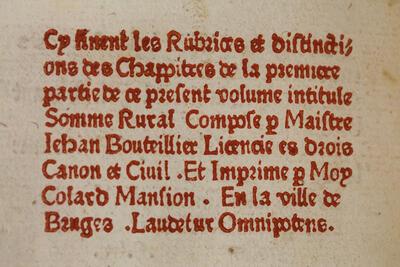 Cy finent les Rubrices et distincti⸗
ons des Chappitres de la premiere
partie de ce present volume intitule
Somme Rural Compose ꝑ Maistre
Iehan Bouteillier Licencie es drois
Canon et Ciuil . Et Imprime ꝑ Moy
Colard Mansion . En la ville de
Bruges . Laudetur Omnipotens .